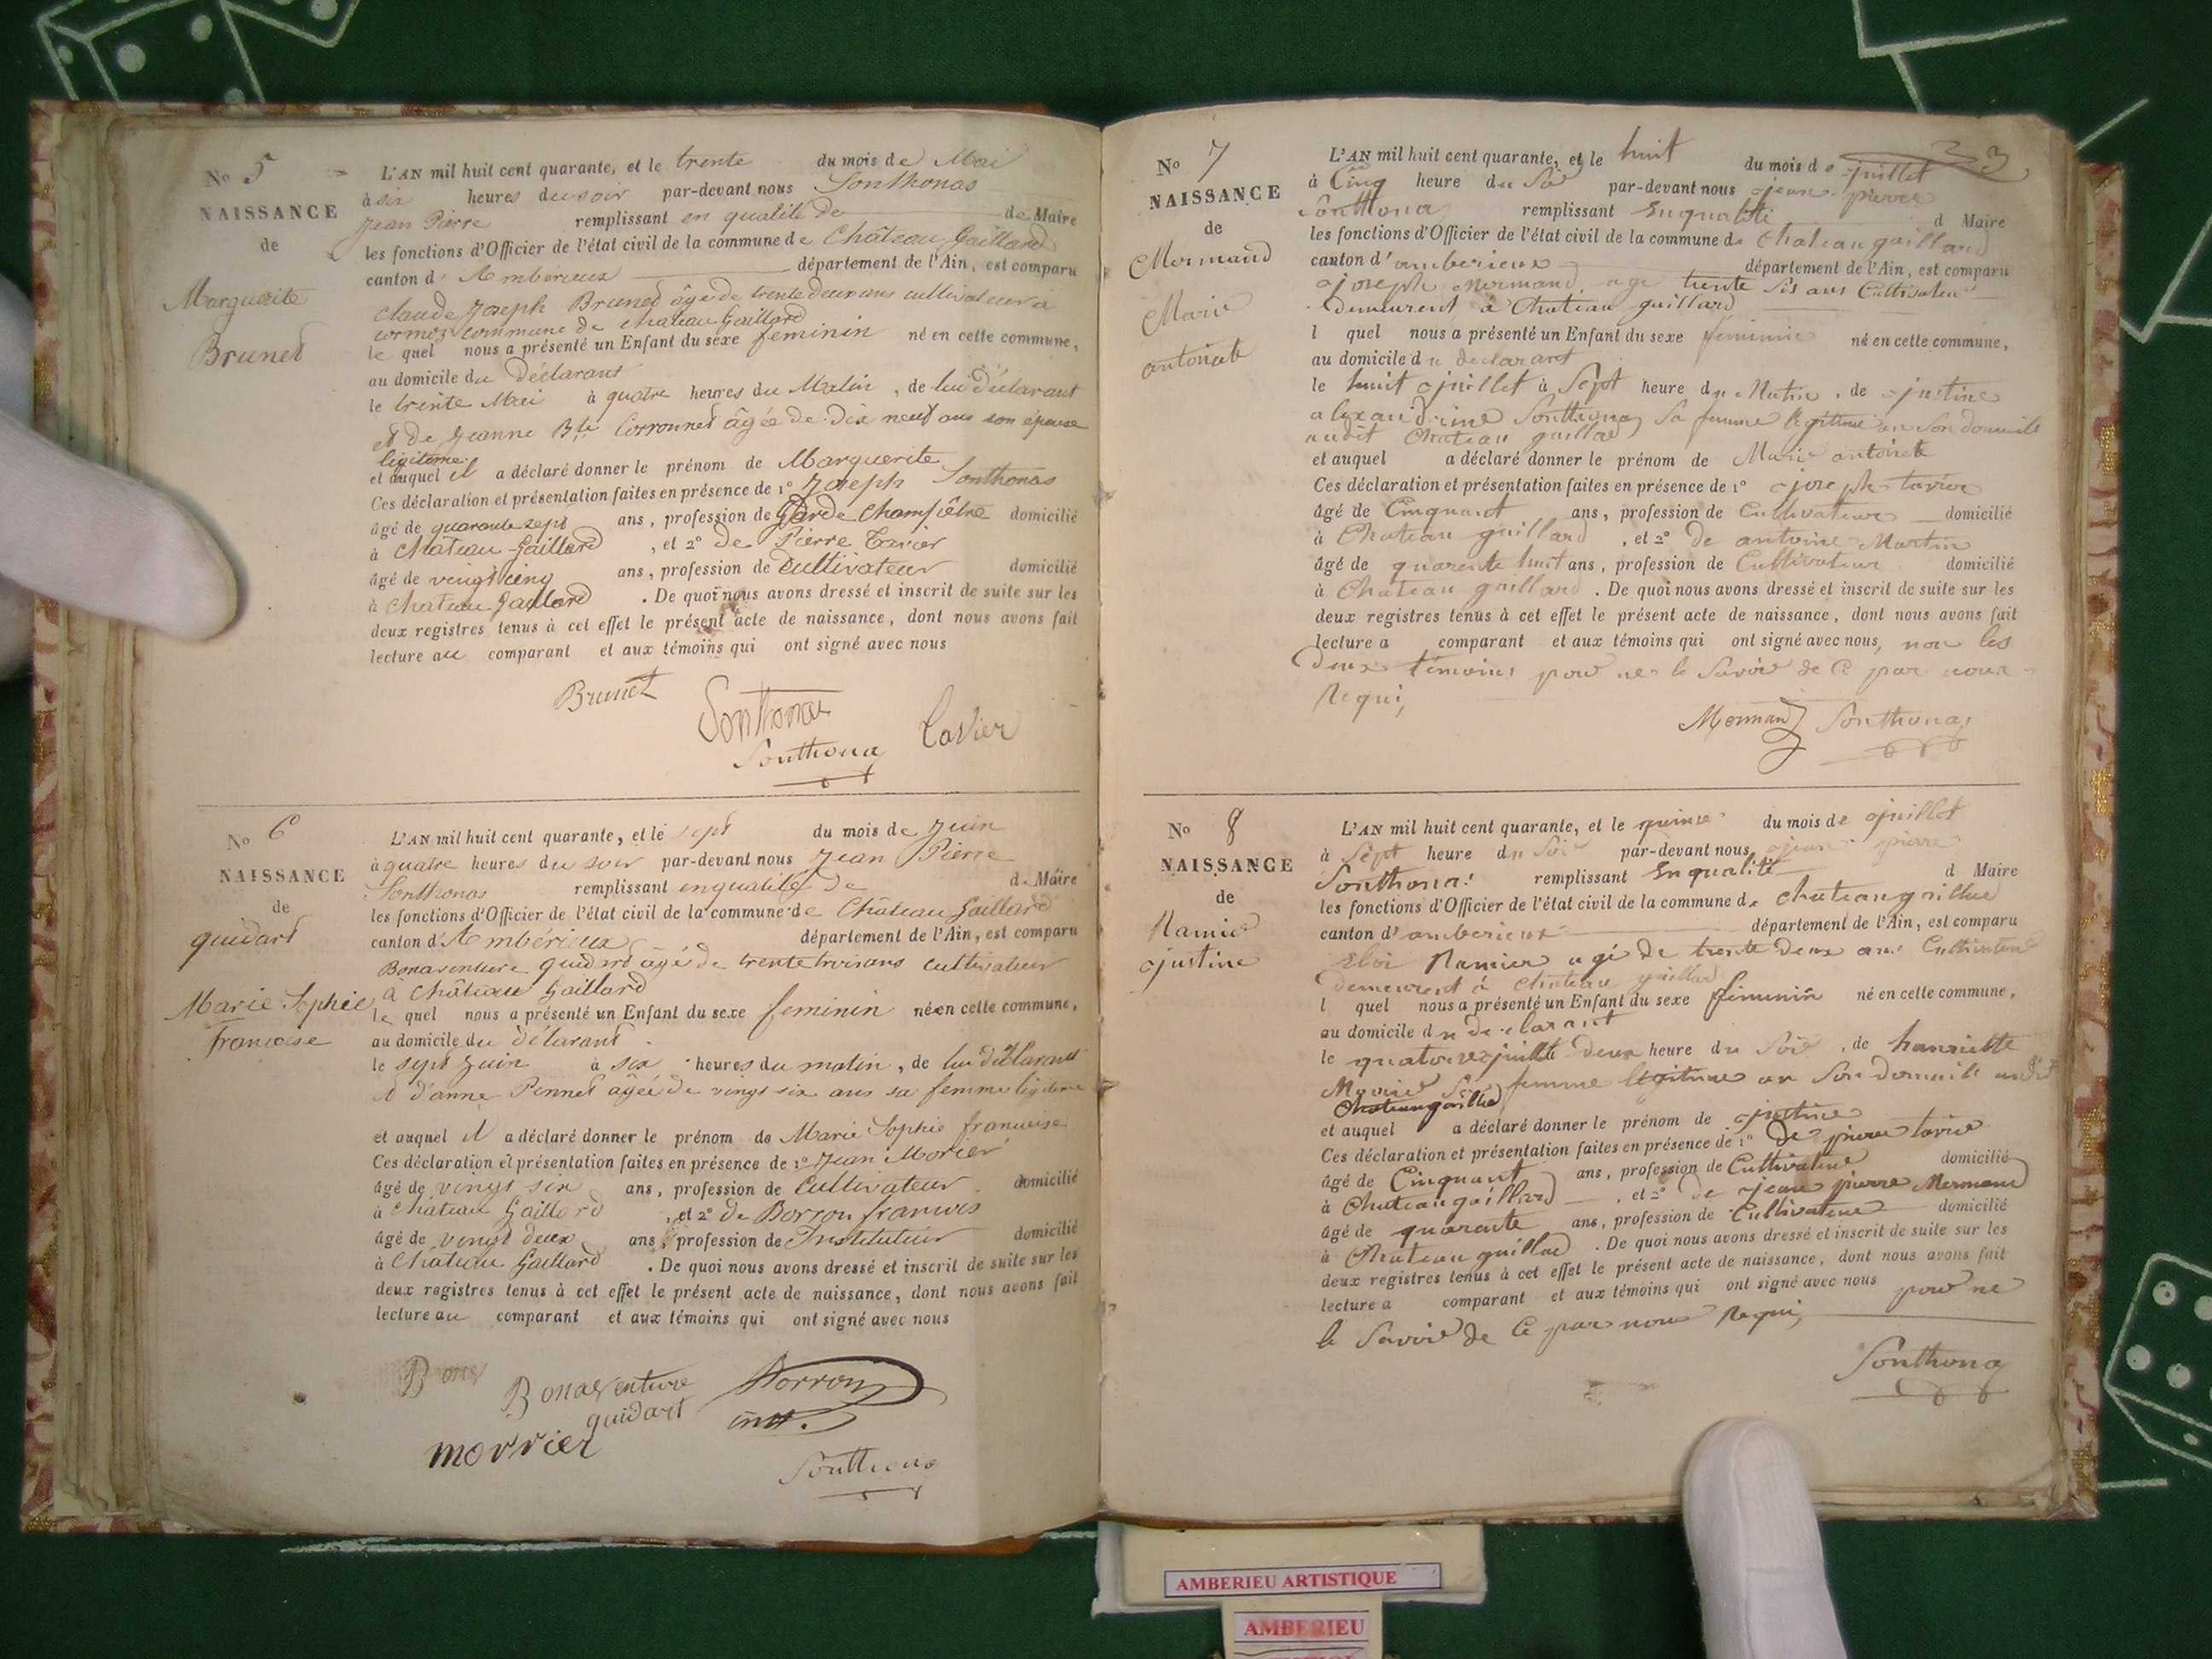 No 5
NAISSANCE
de
Marguerite
Brunet
L'AN mil huit cent quarante, et le trente du mois de Mai
à six heures du soir par-devant nous Sonthonas
Jean Pierre remplissant en qualité de de Maire
les fonctions d'Officier de l'état civil de la commune de Château Gaillard
canton d'Ambérieux département de l'Ain, est comparu
claude Joseph Brunet âgé de trente deux ans cultivateur à
cormoz commune de chateau Gaillard
le quel nous a présenté un Enfant du sexe feminin né en cette commune,
au domicile du Déclarant
le trente Mai à quatre heures du Matin, de lui Déclarant
et de Jeanne Bte Corronnet âgée de Dix neuf ans son épouse
ligitime
et auquel il a déclaré donner le prénom de Marguerite
Ces déclaration et présentation faites en présence de 1º Joseph Sonthonas
âgé de quarante sept ans, profession de Garde Champêtre domicilié
à Château-Gaillard, et 2º de Pierre Tavier
âgé de vingt cinq ans, profession de Cultivateur domicilié
à Chateau Gaillard. De quoi nous avons dressé et inscrit de suite sur les
deux registres tenus à cet effet le présent acte de naissance, dont nous avons fait
lecture au comparant et aux témoins qui ont signé avec nous
Brunet
Sonthonas
Tavier
Sonthona
No 6
NAISSANCE
de
quidart
Marie Sophie
francoise
L'AN mil huit cent quarante, et le sept du mois de Juin
à quatre heures du soir par-devant nous Jean Pierre
Sonthonas remplissant en qualité de de Maire
les fonctions d'Officier de l'état civil de la commune de Château Gaillard
canton d'Ambérieux département de l'Ain, est comparu
Bonaventure quidard âgé de trente trois ans cultivateur
à Château Gaillard
le quel nous a présenté un Enfant du sexe feminin né en cette commune,
au domicile du délarant
le sept Juin à six heures du matin, de lui déclarant
et d'anne Pennet âgée de vingt six ans sa femme ligitime
et auquel il a déclaré donner le prénom de Marie Sophie francoise
Ces déclaration et présentation faites en présence de 1º Jean Morier
âgé de vingt six ans, profession de Cultivateur domicilié
à Château Gaillard, et 2º de Borron francois
âgé de vingt deux ans, profession de Instituteur domicilié
à Château Gaillard. De quoi nous avons dressé et inscrit de suite sur les
deux registres tenus à cet effet le présent acte de naissance, dont nous avons fait
lecture au comparant et aux témoins qui ont signé avec nous
Bona
Bonaventure
quidart
Borron
inst.
morrier
Sonthona
23
No 7
NAISSANCE
de
Mermand
Marie
antoinete
L'AN mil huit cent quarante, et le huit du mois de juillet
à Cinq heure du Soir par-devant nous jean pierre
Sonthona remplissant En qualité d Maire
les fonctions d'Officier de l'état civil de la commune de Chateaugaillard
canton d'amberieux département de l'Ain, est comparu
joseph Mermand age trente Sis ans Cultivateur
Demeurent à Chateau gaillard
l quel nous a présenté un Enfant du sexe féminin né en cette commune,
au domicile du declarant
le huit juillet à Sept heure du Matin, de justine
alexandrine Sonthona Sa femme légitime en Son domicile
audit Chateau gaillard
et auquel a déclaré donner le prénom de Marie antoinete
Ces déclaration et présentation faites en présence de 1º joseph tavier
âgé de Cinquant ans, profession de Cultivateur domicilié
à Chateau gaillard, et 2º de antoine Martin
âgé de quarente huit ans, profession de Cultivateur domicilié
à Chateau gaillard. De quoi nous avons dressé et inscrit de suite sur les
deux registres tenus à cet effet le présent acte de naissance, dont nous avons fait
lecture a comparant et aux témoins qui ont signé avec nous, non les
Deux témoins pour ne le Savoir de Ce par nous
Requi,
Mermand Sonthona
No 8
NAISSANCE
de
Ramier
justine
L'AN mil huit cent quarante, et le quinze du mois de juillet
à Sept heure du Soir par-devant nous jean pierre
Sonthona remplissant En qualité d Maire
les fonctions d'Officier de l'état civil de la commune de chateaugaillard
canton d'amberieux département de l'Ain, est comparu
Eloi Ramier agé de trente deux ans Cultivateur
Demeurent à Chateau gaillard
l quel nous a présenté un Enfant du sexe féminin né en cette commune,
au domicile du declarant
le quatorze juillet à deux heure du Soir, de henriette
Sa femme légitime en Son domicile audit
Chateaugaillard
et auquel a déclaré donner le prénom de justine
Ces déclaration et présentation faites en présence de 1º De pierre tavier
âgé de Cinquant ans, profession de Cultivateur domicilié
à Chateaugaillard, et 2º de jean pierre Mermand
âgé de quarente ans, profession de Cultivateur domicilié
à Chateau gaillard. De quoi nous avons dressé et inscrit de suite sur les
deux registres tenus à cet effet le présent acte de naissance, dont nous avons fait
lecture a comparant et aux témoins qui ont signé avec nous pour ne
le Savoir de Ce par nous Requi,
Sonthona
AMBERIEU ARTISTIQUE
AMBERIEU